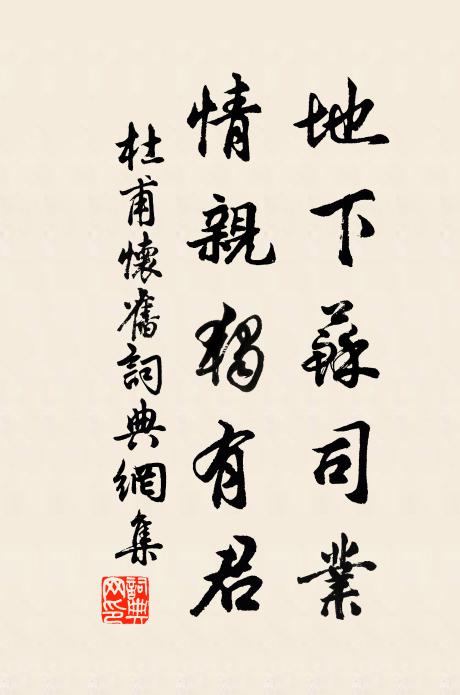 地下蘇司業
情親獨有君
杜甫懷舊詞典網集
詞典网印